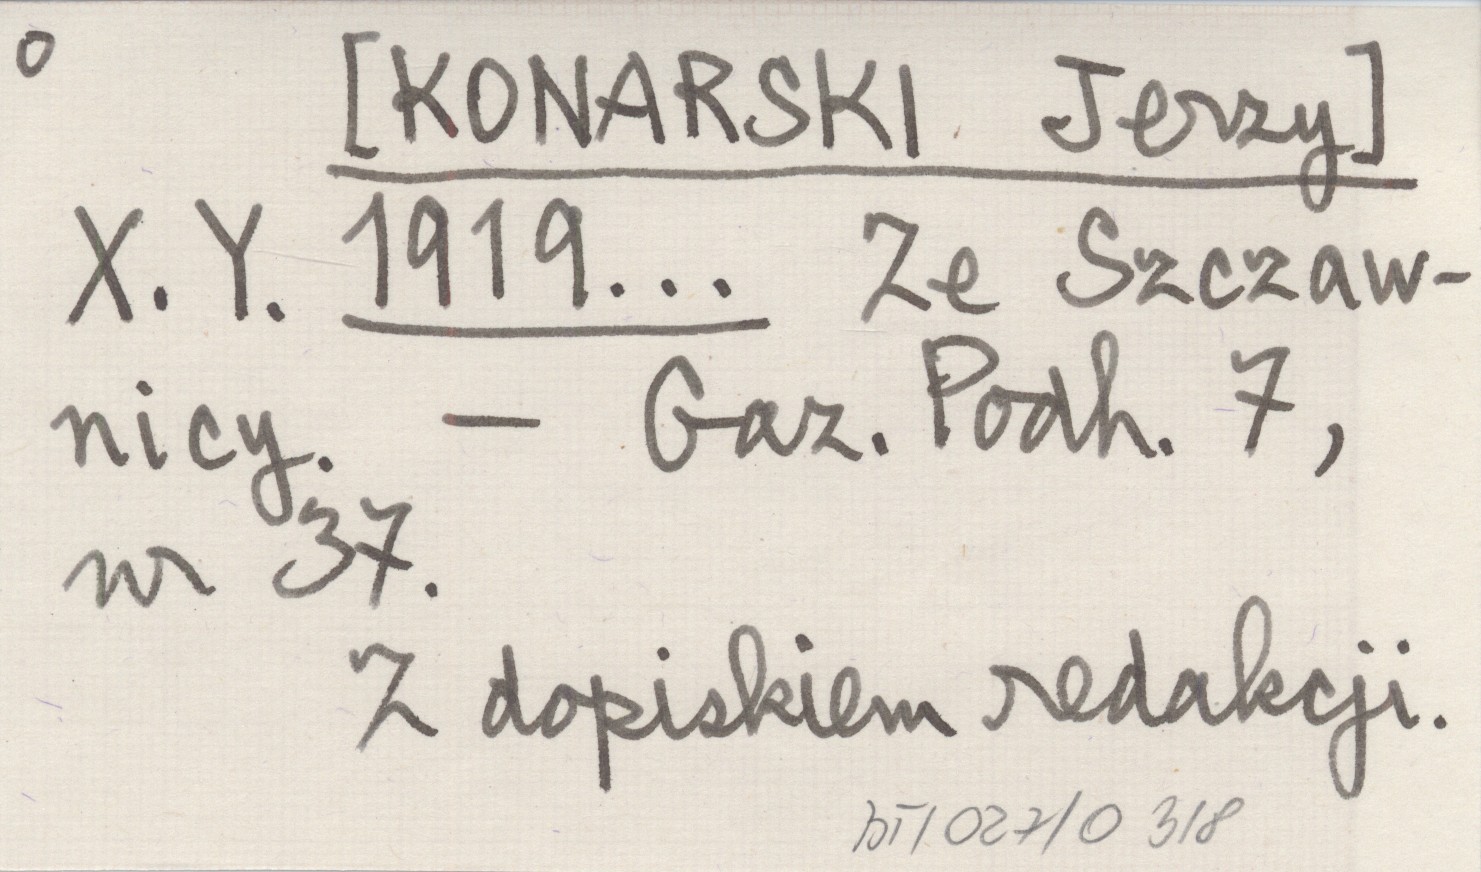 o
[KONARSKI Jerzy]
X. Y. 1919... Ze Szczaw-
nicy. — Gaz. Podh. 7,
nr 37.
Z dopiskiem redakcji.
/027/0 318